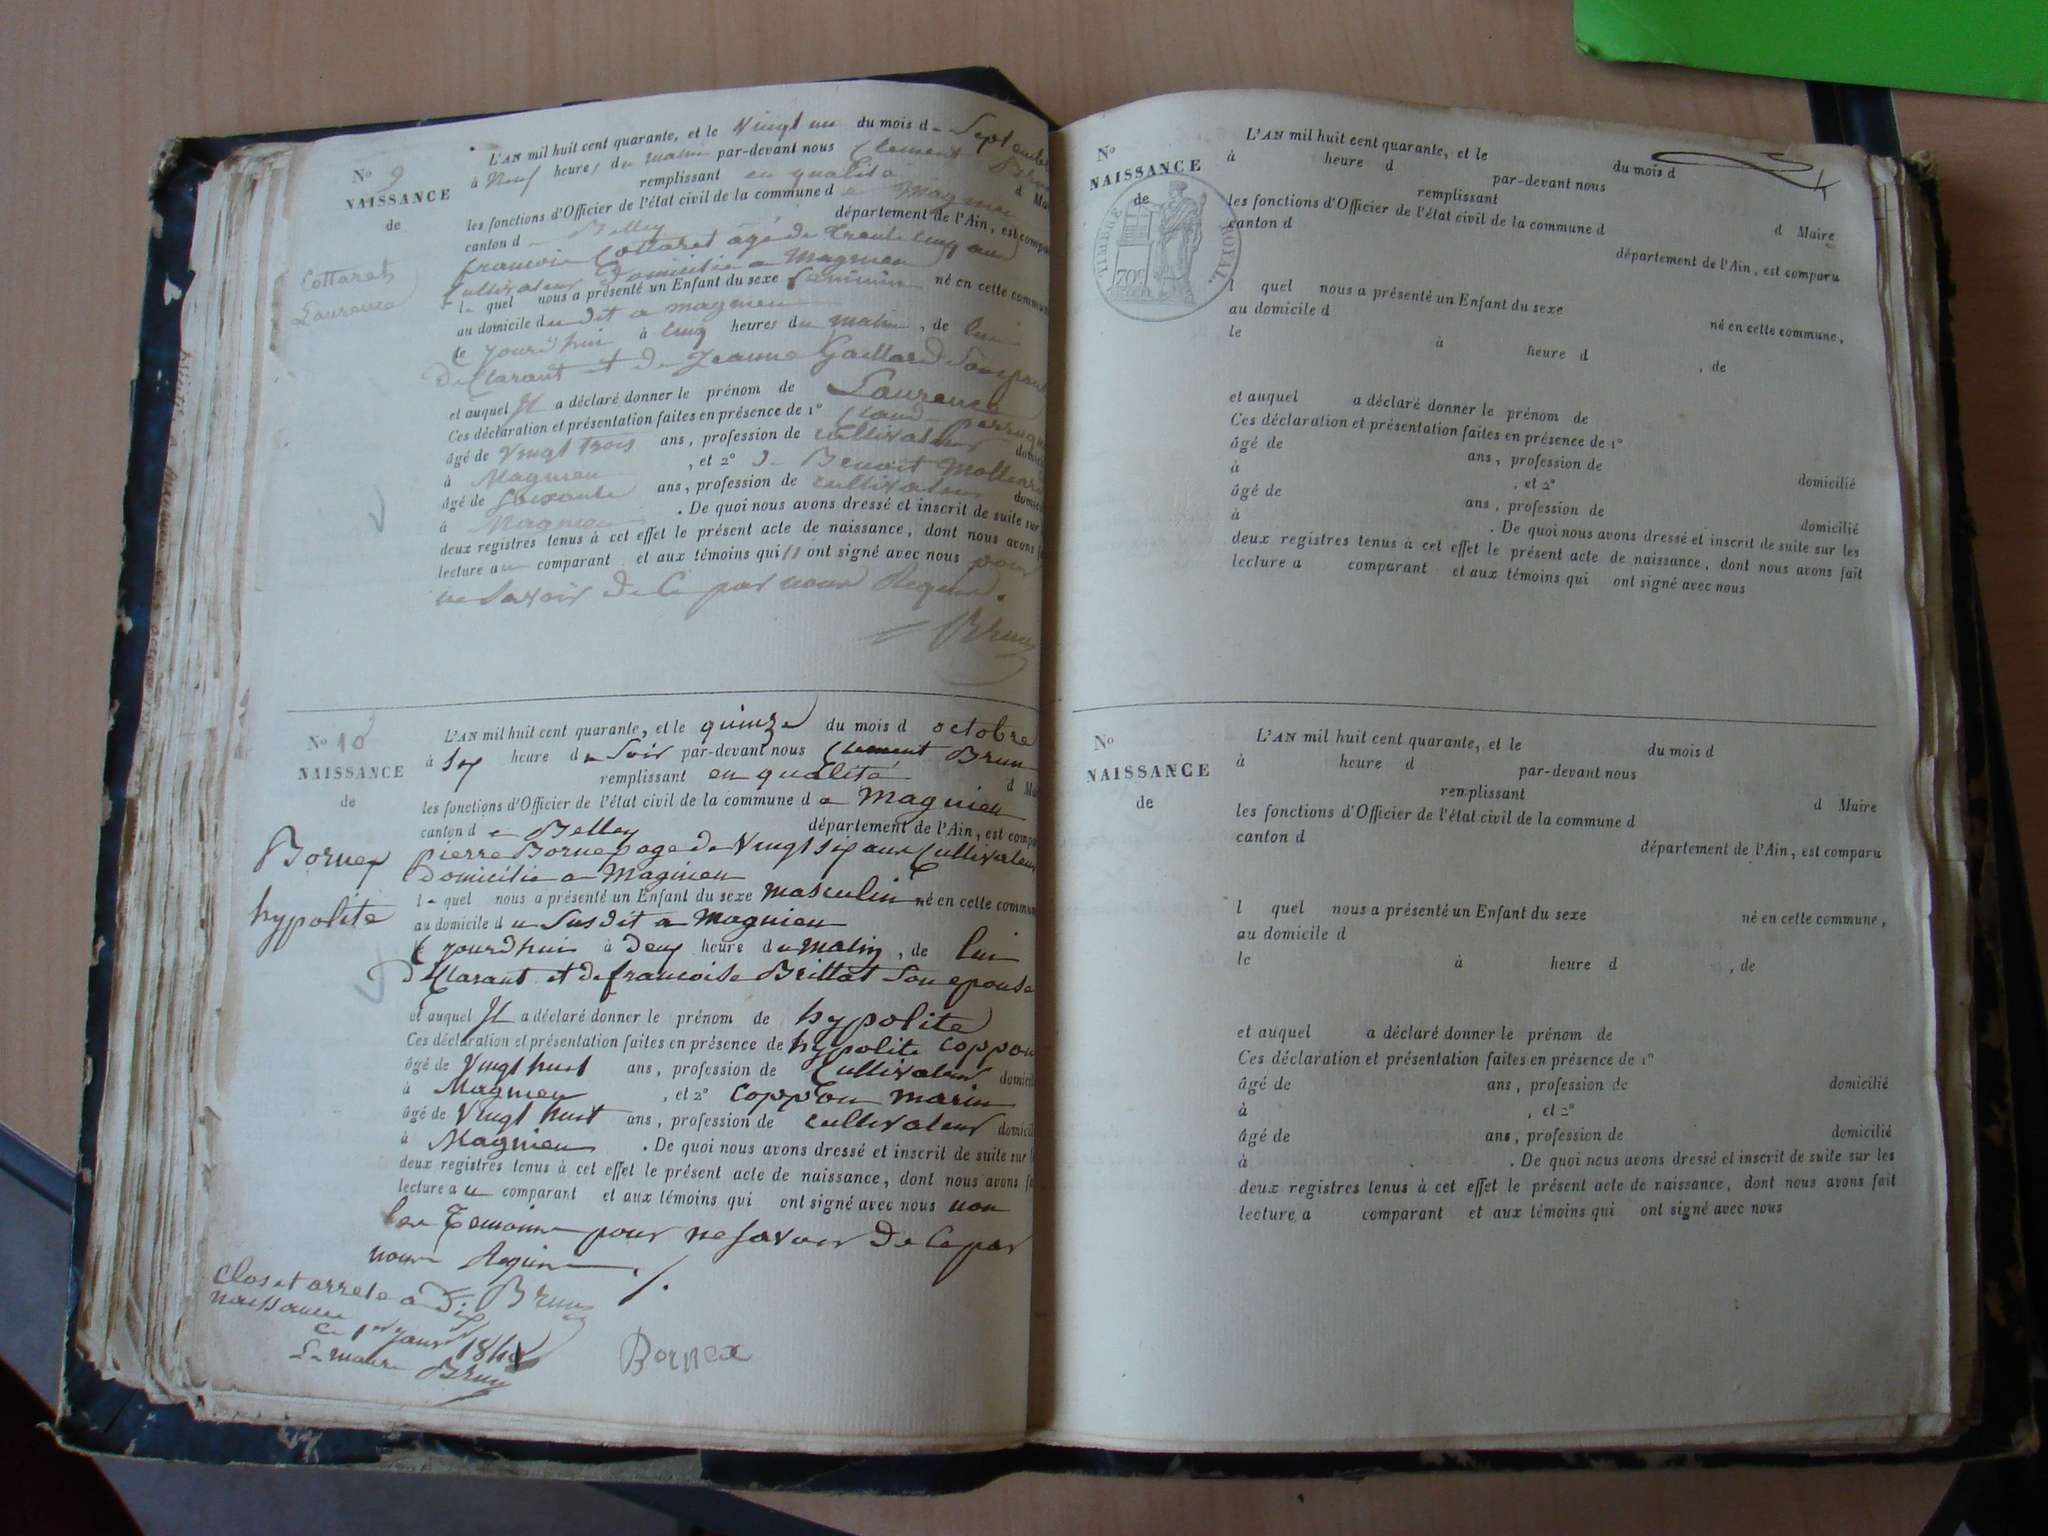 No 9
NAISSANCE
de
Cottaret
Laurence
L'AN mil huit cent quarante, et le Vingt un du mois d Septembre
à Neuf heures du matin par-devant nous Clement Brun
remplissant en qualité d Ma
les fonctions d'Officier de l'état civil de la commune de Magnieu
canton de Belley département de l'Ain, est compa
francois Cottaret âgé de trente cinq ans
Cultivateur Domicilie a Magnieu
le quel nous a présenté un Enfant du sexe feminin né en cette commun
au domicile du dit a magnieu
Ce jourd'hui à cinq heures du matin, de lui
declarant et de Jeanne Gaillard Son
et auquel Il a déclaré donner le prénom de Laurence
Ces déclaration et présentation faites en présence de 1° Claude
âgé de Vingt trois ans, profession de cultivateur domici
à Magnieu, et 2° Benoit
âgé de Soixante ans, profession de cultivateur domici
à Magnieu. De quoi nous avons dressé et inscrit de suite sur
deux registres tenus à cet effet le présent acte de naissance, dont nous avons f
lecture au comparant et aux témoins qui ont signé avec nous pour
ne Savoir de Ce par nous Requis.
Brun
No 10
NAISSANCE
de
Bornex
hypolite
L'AN mil huit cent quarante, et le quinze du mois d octobre
à Six heure du Soir par-devant nous Clement Brun
remplissant en qualité d Ma
les fonctions d'Officier de l'état civil de la commune de Magnieu
canton de Belley département de l'Ain, est compa
pierre Bornex age de Vingt Six ans Cultivateur
Domicilie a Magnieu
le quel nous a présenté un Enfant du sexe masculin né en cette commun
au domicile du Susdit a Magnieu
Ce jourdhui à deux heure du Matin, de lui
declarant et de francoise Brillat Son epouse
et auquel Il a déclaré donner le prénom de hypolite
Ces déclaration et présentation faites en présence de hypolite Coppon
âgé de Vingt huit ans, profession de Cultivateur domicil
à Magnieu, et 2° Coppon marin
âgé de Vingt huit ans, profession de cultivateur domicil
à Magnieu. De quoi nous avons dressé et inscrit de suite sur l
deux registres tenus à cet effet le présent acte de naissance, dont nous avons fa
lecture au comparant et aux témoins qui ont signé avec nous non
les Temoins pour ne Savoir de Ce par
nous Requis.
Brun
Clos et arrete a Dix
naissances
Ce 1er Janvier 1841
Le maire Brun
Bornex
No
NAISSANCE
de
TIMBRE ROYAL
70c
L'AN mil huit cent quarante, et le du mois d
à heure d par-devant nous
remplissant d Maire
les fonctions d'Officier de l'état civil de la commune d
canton d département de l'Ain, est comparu
l quel nous a présenté un Enfant du sexe né en cette commune,
au domicile d
le à heure d , de
et auquel a déclaré donner le prénom de
Ces déclaration et présentation faites en présence de 1°
âgé de ans, profession de domicilié
à , et 2°
âgé de ans, profession de domicilié
à . De quoi nous avons dressé et inscrit de suite sur les
deux registres tenus à cet effet le présent acte de naissance, dont nous avons fait
lecture a comparant et aux témoins qui ont signé avec nous
No
NAISSANCE
de
L'AN mil huit cent quarante, et le du mois d
à heure d par-devant nous
remplissant d Maire
les fonctions d'Officier de l'état civil de la commune d
canton d département de l'Ain, est comparu
l quel nous a présenté un Enfant du sexe né en cette commune,
au domicile d
le à heure d , de
et auquel a déclaré donner le prénom de
Ces déclaration et présentation faites en présence de 1°
âgé de ans, profession de domicilié
à , et 2°
âgé de ans, profession de domicilié
à . De quoi nous avons dressé et inscrit de suite sur les
deux registres tenus à cet effet le présent acte de naissance, dont nous avons fait
lecture a comparant et aux témoins qui ont signé avec nous